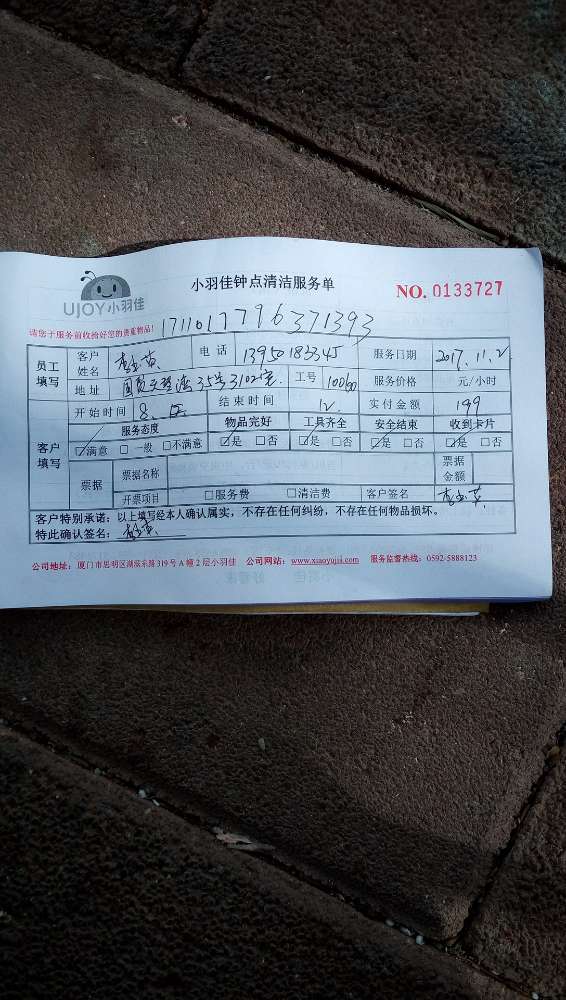 小羽佳钟点清洁服务单
NO. 0133727
UJOY小羽佳
请您于服务前收拾好您的贵重物品!
1711017796371393
员工填写 客户姓名 电话 13950183345 服务日期 2017.11.2
地址 35号3102室 工号 10060 服务价格 元/小时
客户填写 开始时间 8. 结束时间 12. 实付金额 199
服务态度 物品完好 工具齐全 安全结束 收到卡片
☑满意 □一般 □不满意 ☑是 □否 ☑是 □否 ☑是 □否 ☑是 □否
票据 票据名称 票据金额
开票项目 □服务费 □清洁费 客户签名
客户特别承诺:以上填写经本人确认属实,不存在任何纠纷,不存在任何物品损坏。
特此确认签名:
公司地址:厦门市思明区湖滨东路319号A幢2层小羽佳 公司网站:www.xiaoyujia.com 服务监督热线:0592-5888123